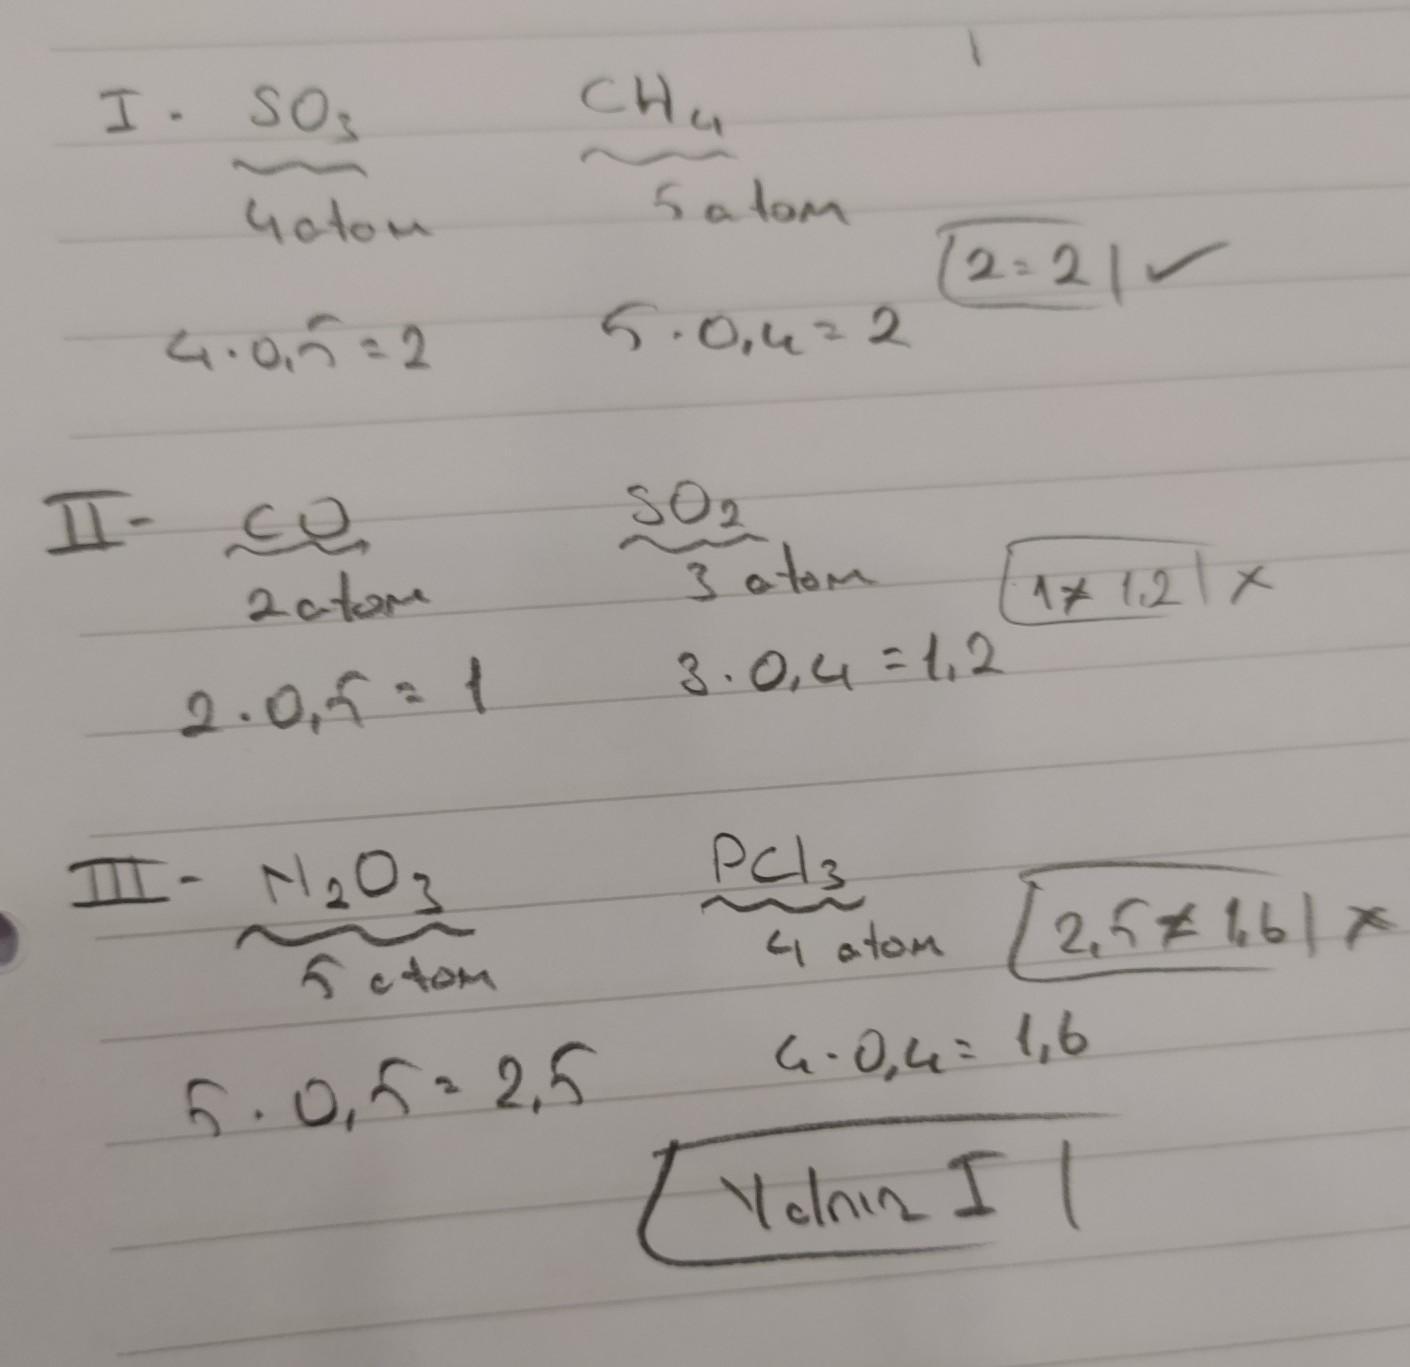 I. SO₃ CH₄
4 atom 5 atom
2=2 ✓
4.0,5=2 5.0,4=2
II- CO SO₂
2 atom 3 atom
1≠1,2 x
2.0,5=1 3.0,4=1,2
III- N₂O₃ PCl₃
5 atom 4 atom
2,5≠1,6 x
5.0,5=2,5 4.0,4=1,6
Yalnız I